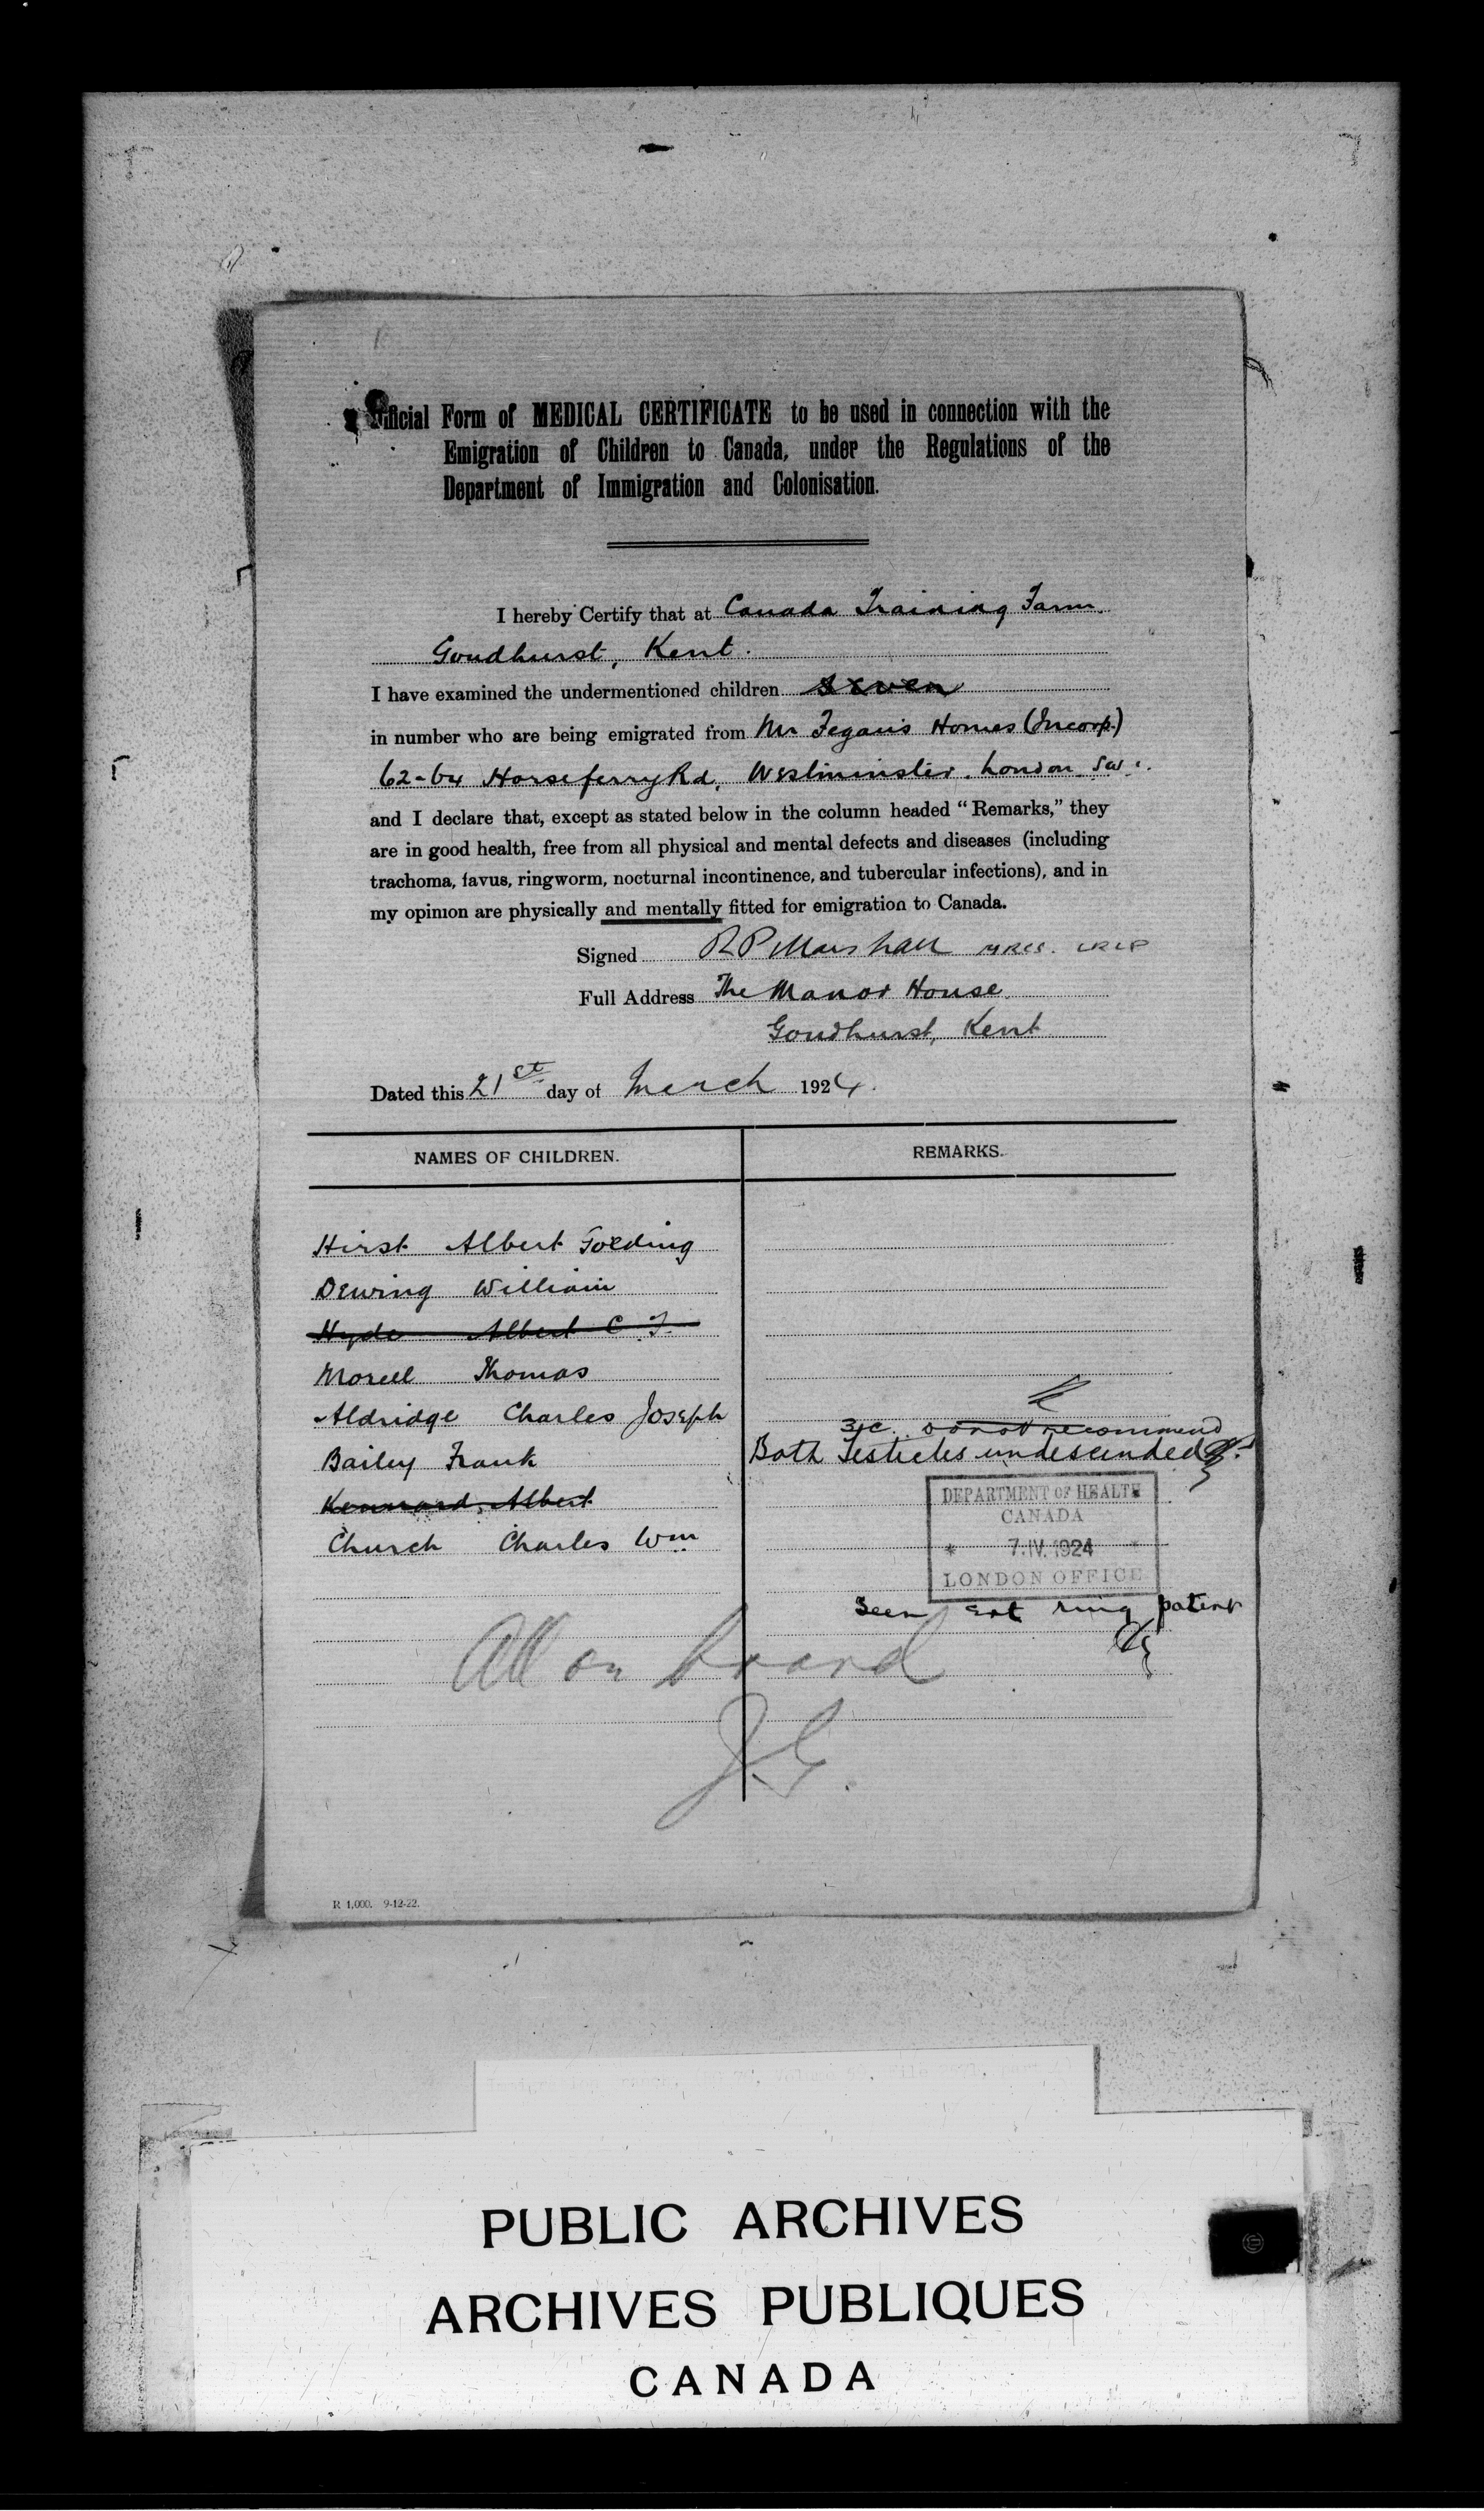 Official Form of MEDICAL CERTIFICATE to be used in connection with the
Emigration of Children to Canada, under the Regulations of the
Department of Immigration and Colonisation.
I hereby Certify that at Canada Training Farm.
Goudhurst, Kent.
I have examined the undermentioned children seven
in number who are being emigrated from Mr Fegan's Homes (Incorp.)
62-64 Horseferry Rd, Westminster. London SW1.
and I declare that, except as stated below in the column headed “Remarks,” they
are in good health, free from all physical and mental defects and diseases (including
trachoma, favus, ringworm, nocturnal incontinence, and tubercular infections), and in
my opinion are physically and mentally fitted for emigration to Canada.
Signed R P Marshall MRCS. LRCP
Full Address The Manor House
Goudhurst, Kent
Dated this 21st day of March 1924.
NAMES OF CHILDREN. REMARKS.
Hirst Albert Golding
Dewing William
Hyde Albert C. F.
Morell Thomas
Aldridge Charles Joseph
3, c. do not recommend
Bailey Frank Both Testicles undescended
Kennard, Albert
Church Charles Wm
DEPARTMENT OF HEALTH
CANADA
* 7.IV.1924 *
LONDON OFFICE
Seen Ext ring patent
All on board
J.G.
R 1,000. 9-12-22.
PUBLIC ARCHIVES
ARCHIVES PUBLIQUES
CANADA